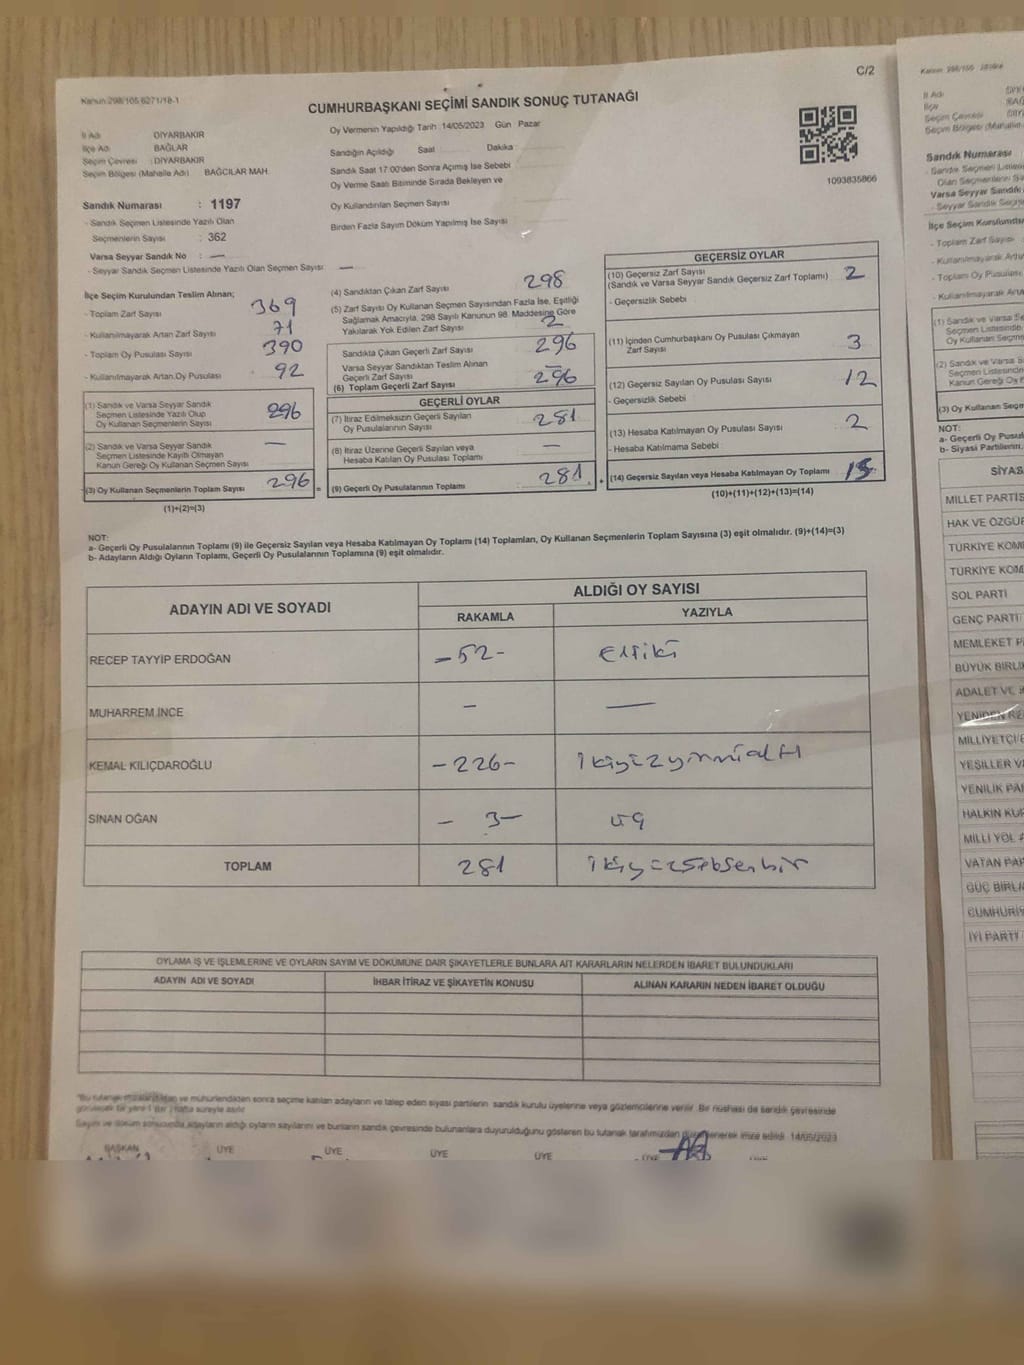 Kanun:298/105 6271/18-1
C/2
CUMHURBAŞKANI SEÇİMİ SANDIK SONUÇ TUTANAĞI
İl Adı DİYARBAKIR
İlçe Adı BAĞLAR
Seçim Çevresi : DİYARBAKIR
Seçim Bölgesi (Mahalle Adı) BAĞCILAR MAH.
Sandık Numarası : 1197
- Sandık Seçmen Listesinde Yazılı Olan
Seçmenlerin Sayısı : 362
Varsa Seyyar Sandık No : —
- Seyyar Sandık Seçmen Listesinde Yazılı Olan Seçmen Sayısı —
Oy Vermenin Yapıldığı Tarih 14/05/2023 Gün Pazar
Sandığın Açıldığı Saat Dakika
Sandık Saat 17:00'den Sonra Açımış İse Sebebi
Oy Verme Saati Bitiminde Sırada Bekleyen ve
Oy Kullandırılan Seçmen Sayısı
Birden Fazla Sayım Döküm Yapılmış İse Sayısı
1093835866
İlçe Seçim Kurulundan Teslim Alınan;
- Toplam Zarf Sayısı 369
- Kullanılmayarak Artan Zarf Sayısı 71
- Toplam Oy Pusulası Sayısı 390
- Kullanılmayarak Artan Oy Pusulası 92
(1) Sandık ve Varsa Seyyar Sandık
Seçmen Listesinde Yazılı Olup
Oy Kullanan Seçmenlerin Sayısı 296
(2) Sandık ve Varsa Seyyar Sandık
Seçmen Listesinde Kayıtlı Olmayan
Kanun Gereği Oy Kullanan Seçmen Sayısı —
(3) Oy Kullanan Seçmenlerin Toplam Sayısı 296 =
(1)+(2)=(3)
(4) Sandıktan Çıkan Zarf Sayısı 298
(5) Zarf Sayısı Oy Kullanan Seçmen Sayısından Fazla İse, Eşitliği
Sağlamak Amacıyla, 298 Sayılı Kanunun 98. Maddesine Göre
Yakılarak Yok Edilen Zarf Sayısı 2
Sandıkta Çıkan Geçerli Zarf Sayısı 296
Varsa Seyyar Sandıktan Teslim Alınan
Geçerli Zarf Sayısı —
(6) Toplam Geçerli Zarf Sayısı 296
GEÇERLİ OYLAR
(7) İtiraz Edilmeksizin Geçerli Sayılan
Oy Pusulalarının Sayısı 281
(8) İtiraz Üzerine Geçerli Sayılan veya
Hesaba Katılan Oy Pusulası Toplamı —
(9) Geçerli Oy Pusulalarının Toplamı 281 +
GEÇERSİZ OYLAR
(10) Geçersiz Zarf Sayısı
(Sandık ve Varsa Seyyar Sandık Geçersiz Zarf Toplamı) 2
- Geçersizlik Sebebi
(11) İçinden Cumhurbaşkanı Oy Pusulası Çıkmayan
Zarf Sayısı 3
(12) Geçersiz Sayılan Oy Pusulası Sayısı 12
- Geçersizlik Sebebi
(13) Hesaba Katılmayan Oy Pusulası Sayısı 2
- Hesaba Katılmama Sebebi
(14) Geçersiz Sayılan veya Hesaba Katılmayan Oy Toplamı 15
(10)+(11)+(12)+(13)=(14)
NOT:
a- Geçerli Oy Pusulalarının Toplamı (9) ile Geçersiz Sayılan veya Hesaba Katılmayan Oy Toplamı (14) Toplamları, Oy Kullanan Seçmenlerin Toplam Sayısına (3) eşit olmalıdır. (9)+(14)=(3)
b- Adayların Aldığı Oyların Toplamı, Geçerli Oy Pusulalarının Toplamına (9) eşit olmalıdır.
ADAYIN ADI VE SOYADI
ALDIĞI OY SAYISI
RAKAMLA YAZIYLA
RECEP TAYYİP ERDOĞAN -52- Elliiki
MUHARREM İNCE — —
KEMAL KILIÇDAROĞLU -226- ikiyüzyirmialtı
SİNAN OĞAN - 3- üç
TOPLAM 281 ikiyüzseksenbir
OYLAMA İŞ VE İŞLEMLERİNE VE OYLARIN SAYIM VE DÖKÜMÜNE DAİR ŞİKAYETLERLE BUNLARA AİT KARARLARIN NELERDEN İBARET BULUNDUKLARI
ADAYIN ADI VE SOYADI İHBAR İTİRAZ VE ŞİKAYETİN KONUSU ALINAN KARARIN NEDEN İBARET OLDUĞU
ve mühürlendikten sonra seçime katılan adayların ve talep eden siyasi partilerin sandık kurulu üyelerine veya gözlemcilerine verilir. Bir nüshası da sandık çevresinde
Sayım ve döküm sonucunda adayların aldığı oyların sayılarını ve bunların sandık çevresinde bulunanlara duyurulduğunu gösteren bu tutanak tarafımızdan imza edildi. 14/05/2023
BAŞKAN ÜYE ÜYE ÜYE ÜYE ÜYE
İl Adı
İlçe
Seçim Çevresi
Seçim Bölgesi (Mahalle
Sandık Numarası
Varsa Seyyar Sandık
İlçe Seçim Kurulundan
- Toplam Zarf Sayısı
- Kullanılmayarak
- Toplam Oy Pusulası
- Kullanılmayarak
(1) Sandık ve Varsa
Seçmen Listesinde
Oy Kullanan
(2) Sandık ve Varsa
Seçmen Listesinde
Kanun Gereği
(3) Oy Kullanan
NOT:
a- Geçerli Oy
b- Siyasi Partilerin
SİYAS
MİLLET PARTİS
HAK VE ÖZGÜ
TÜRKİYE KOM
TÜRKİYE KOM
SOL PARTİ
GENÇ PARTİ
MEMLEKET P
BÜYÜK BİRLİ
ADALET VE
YENİDEN RE
MİLLİYETÇİ
YEŞİLLER V
YENİLİK PA
HALKIN KU
MİLLİ YOL
VATAN PA
GÜÇ BİRLİ
CUMHURİ
İYİ PARTİ